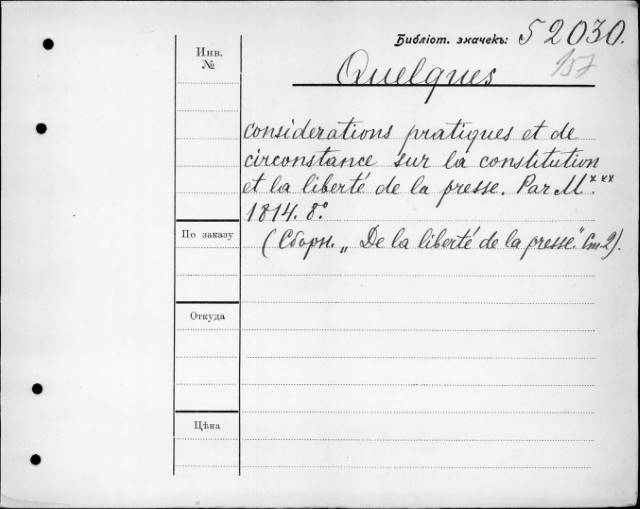 Библіот. значекъ: 52030.
157
Инв.
№
Quelques
considerations pratiques et de
circonstance sur la constitution
et la liberté de la presse. Par M***.
1814. 8°.
По заказу
(Сборн. „De la liberté de la presse." Ст. 2).
Откуда
Цѣна